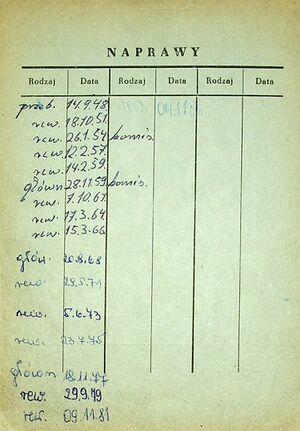 NAPRAWY
Rodzaj Data Rodzaj Data Rodzaj Data
prób. 14.9.48.
rew. 18.10.51.
rew. 26.1.54 komis.
rew. 12.2.57.
rew. 14.2.59.
główn 28.11.59 komis.
rew. 7.10.61.
rew. 17.3.64.
rew. 15.3.66.
głów. 20.8.68
rew. 28.5.71
rew. 5.6.73
rew. 23.7.75
główn 18.11.77
rew. 29.9.79
rew. 09.11.81